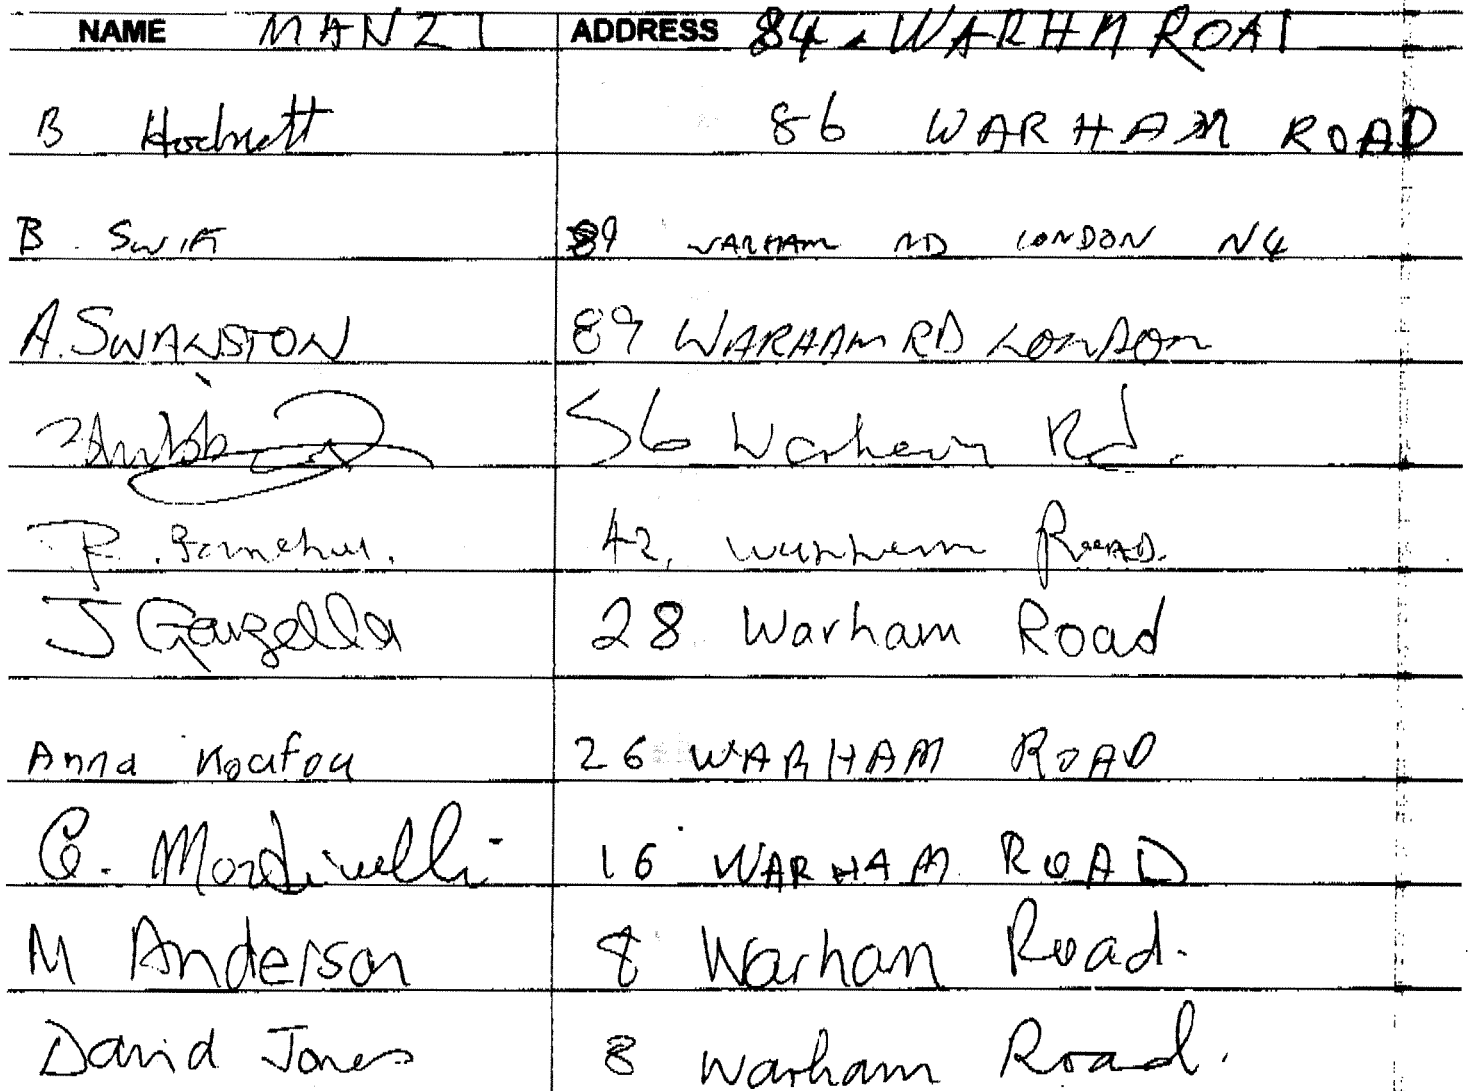 NAME MANZI ADDRESS 84. WARHM ROAD
B Hodnett 86 WARHAM ROAD
B. SWIFT 89 WARHAM RD LONDON N4
A. SWANSTON 89 WARHAM RD LONDON
56 Warham Rd.
R. 42, Warham ROAD.
J Garzella 28 Warham Road
Anna Koufou 26 WARHAM ROAD
G. 16 WARHAM ROAD
M Anderson 8 Warham Road.
David Jones 8 Warham Road.